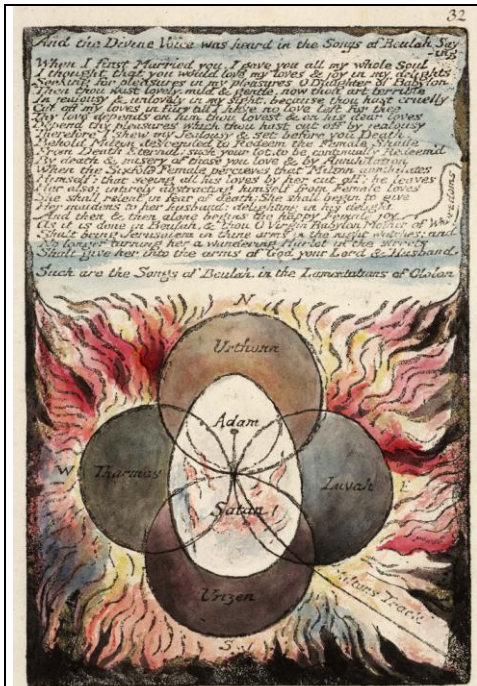 32
And the Divine Voice was heard in the Songs of Beulah Say
-ing
When I first Married you, I gave you all my whole Soul
I thought that you would love my loves & joy in my delights
Seeking for pleasures in my pleasures O Daughter of Babylon
Then thou wast lovely, mild & gentle, now thou art terrible
In jealousy & unlovely in my sight, because thou hast cruelly
Cut off my loves in fury till I have no love left for thee
Thy love depends on him thou lovest & on his dear loves
Depend thy pleasures which thou hast cut off by jealousy
Therefore I shew my Jealousy & set before you Death.
Behold Milton descended to Redeem the Female Shade
From Death Eternal; such your lot, to be continually Redeem'd
By death & misery of those you love & by Annihilation
When the Sixfold Female percieves that Milton annihilates
Himself: that seeing all his loves by her cut off: he leaves
Her also: intirely abstracting himself from Female loves
She shall relent in fear of death: She shall begin to give
Her maidens to her husband: delighting in his delight
And then & then alone begins the happy Female joy
As it is done in Beulah, & thou O Virgin Babylon Mother of Whoredoms
Shalt bring Jerusalem in thine arms in the night watches; and
No longer turning her a wandering Harlot in the streets
Shalt give her into the arms of God your Lord & Husband.
Such are the Songs of Beulah in the Lamentations of Ololon
N
Urthona
Adam
W
Tharmas
Luvah
Satan
Urizen
Miltons Track
S